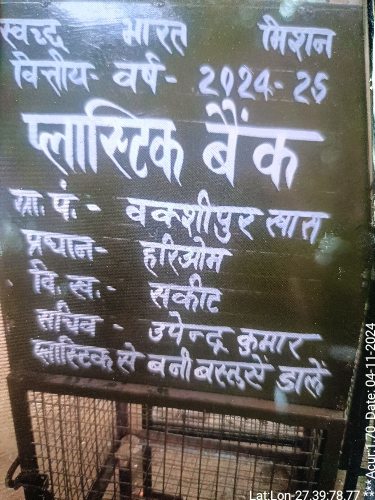 स्वच्छ भारत मिशन
वित्तीय- वर्ष- 2024-25
प्लास्टिक बैंक
ग्रा. पं.- वक्शीपुर खास
प्रधान- हरिओम
वि. ख.- सकीट
सचिव - उपेन्द्र कुमार
प्लास्टिक से बनी वस्तुऐं डालें
Lat:Lon-27.39:78.77
***Acur:1.70 Date: 04-11-2024